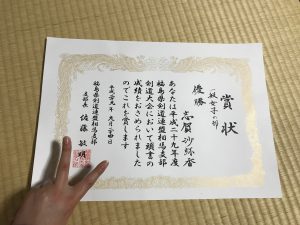 賞状
一般女子の部
優勝
志賀沙弥香
あなたは平成二十九年度
福島県剣道連盟相馬支部
剣道大会において頭書の
成績をおさめられました
のでこれを賞します
平成二十九年九月二十四日
福島県剣道連盟相馬支部
支部長 佐藤敏明